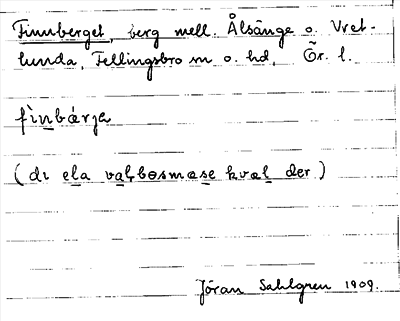 Finnberget, berg mell. Ålsänge o. Vret-
lunda, Fellingsbro sn o. hd, Ör. l.
fìnbárja
(di ela valbosmæse kvæl der)
Jöran Sahlgren 1909.